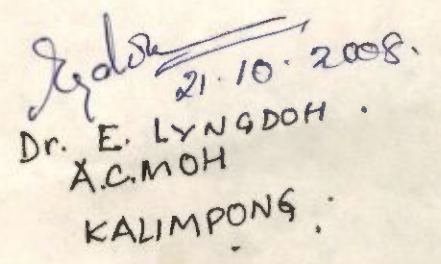 21.10.2008.
Dr. E. LYNGDOH.
A.C.MOH
KALIMPONG.